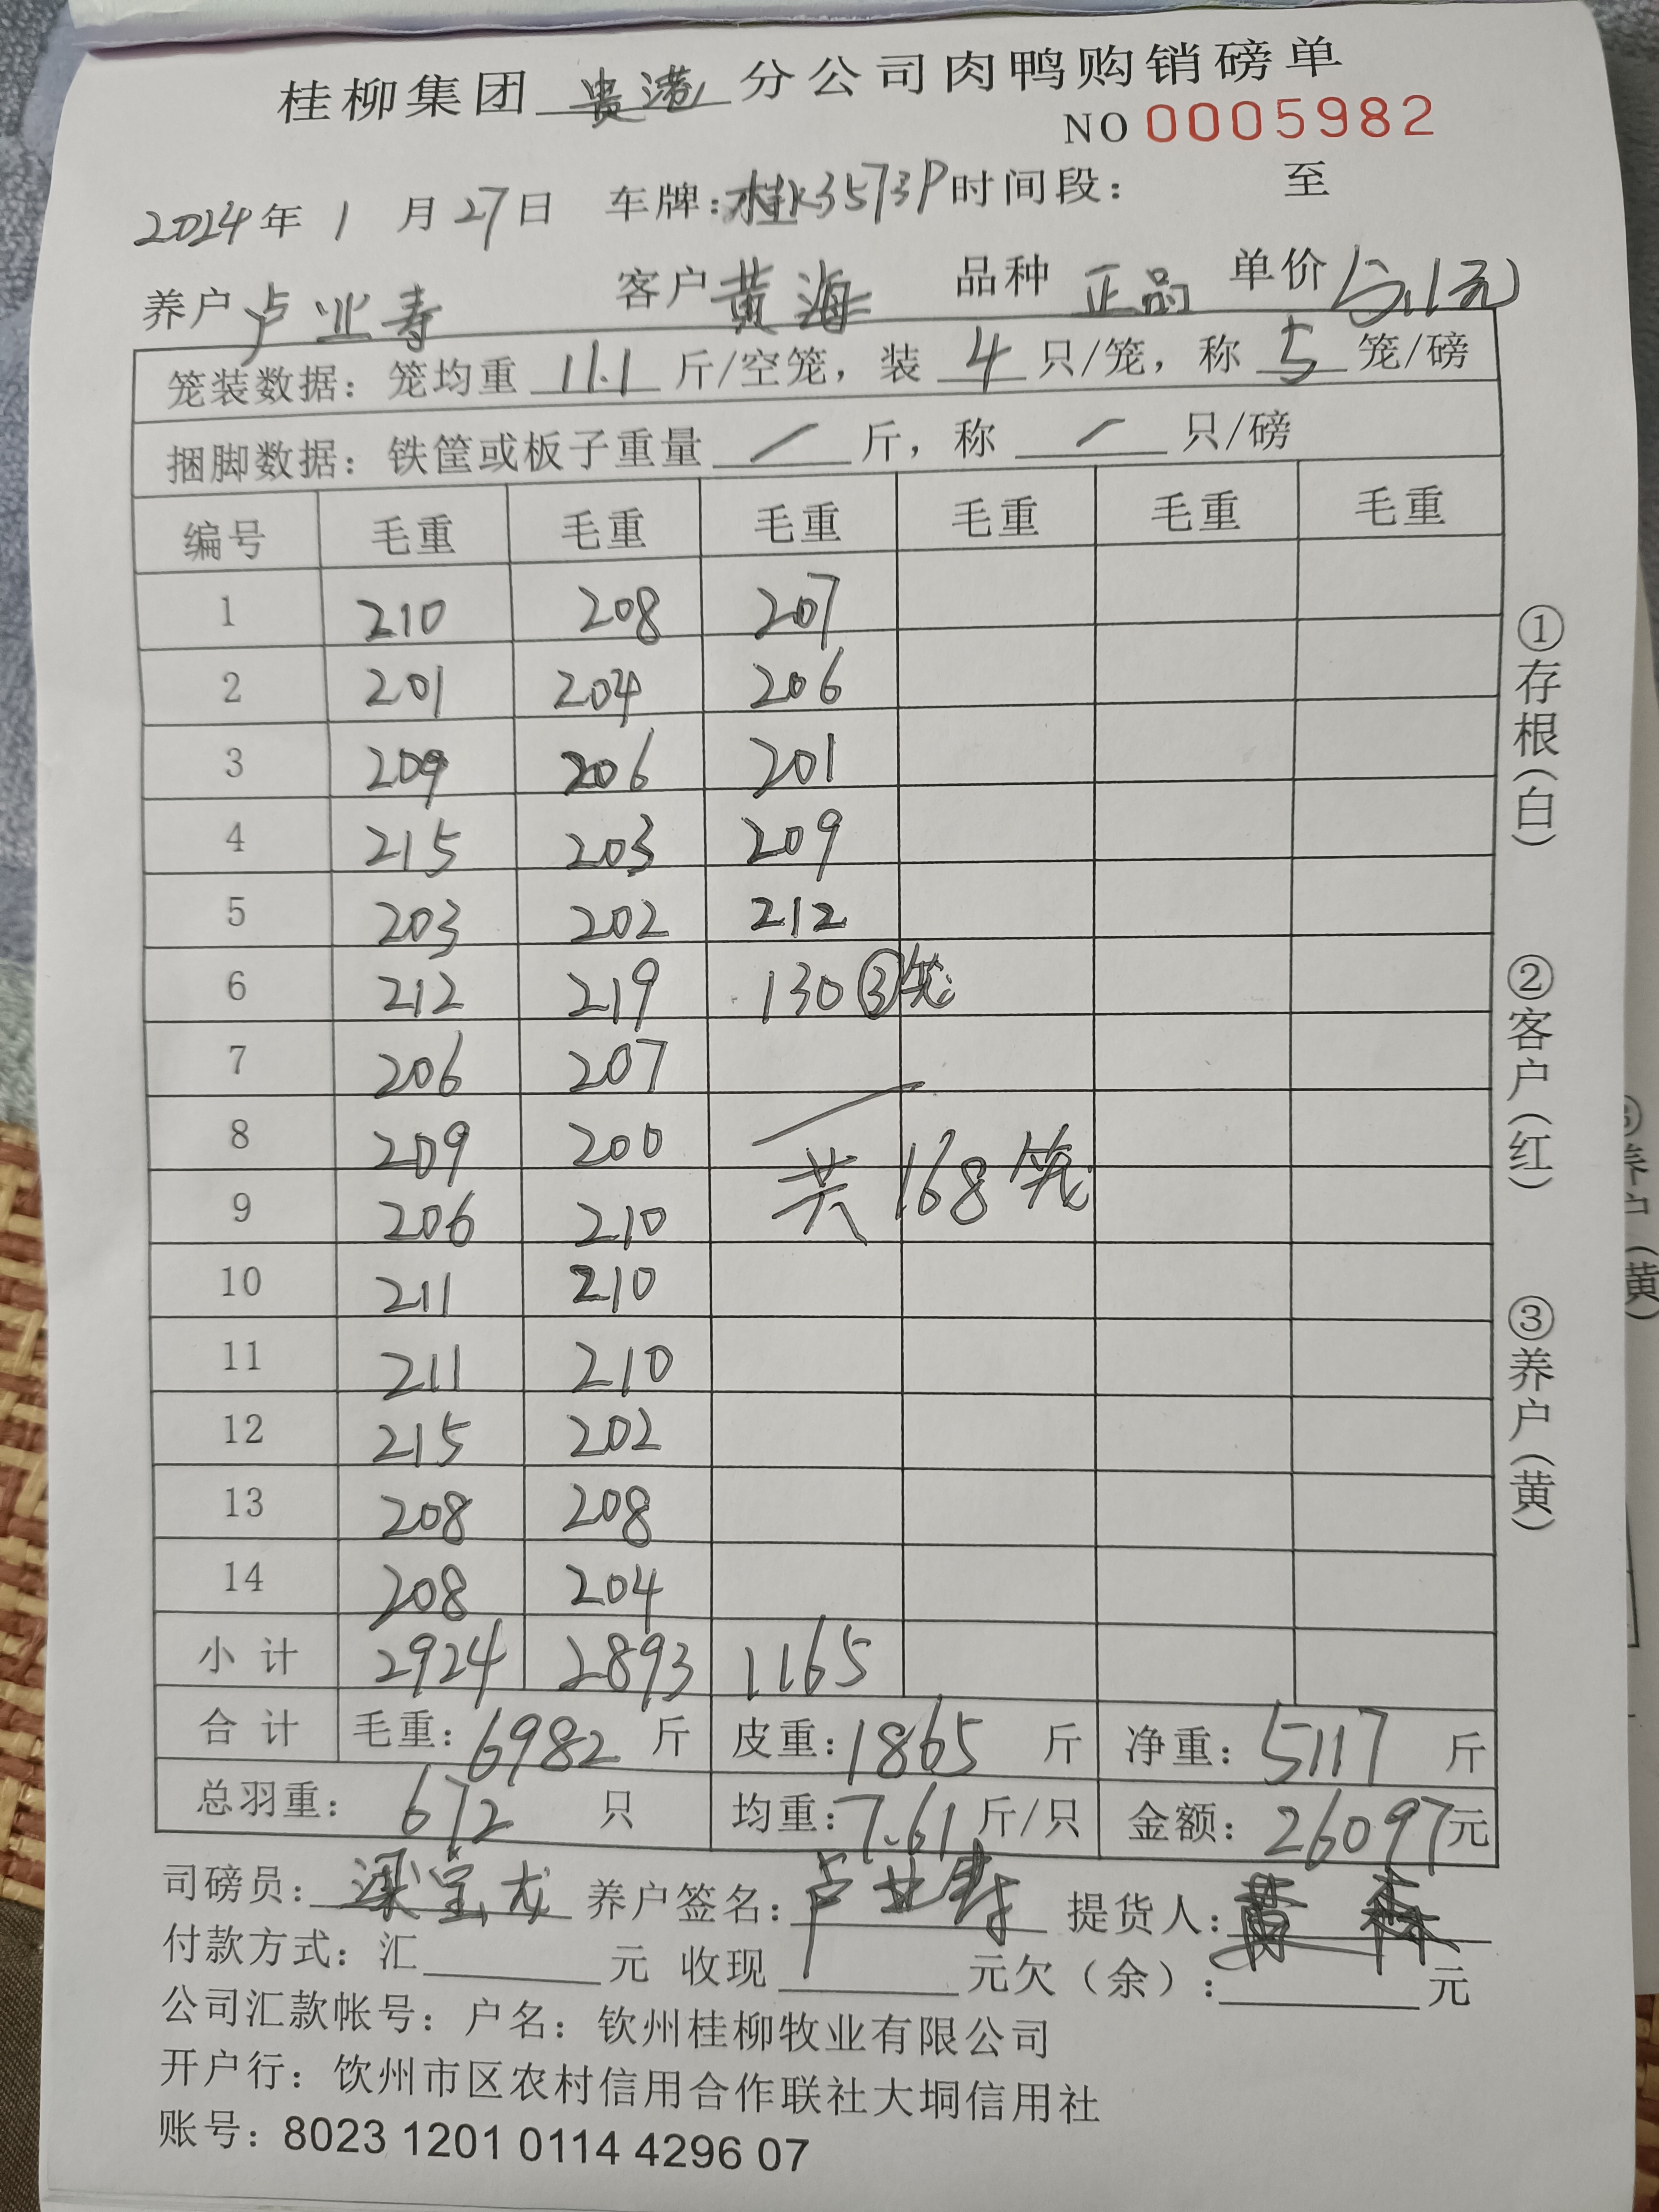 桂柳集团 贵港 分公司肉鸭购销磅单
NO 0005982
2024年 1 月 27日 车牌:桂K3573P 时间段: 至
养户 卢业寿 客户 黄海 品种 正品 单价 5.1元
笼装数据: 笼均重 11.1 斤/空笼, 装 4 只/笼, 称 5 笼/磅
捆脚数据: 铁筐或板子重量 / 斤, 称 / 只/磅
编号 毛重 毛重 毛重 毛重 毛重 毛重
1 210 208 207
2 201 204 206
3 209 206 201
4 215 203 209
5 203 202 212
6 212 219 130 ③笼
7 206 207
8 209 200
共 168 笼
9 206 210
10 211 210
11 211 210
12 215 202
13 208 208
14 208 204
小计 2924 2893 1165
合计 毛重: 6982 斤 皮重: 1865 斤 净重: 5117 斤
总羽重: 672 只 均重: 7.61 斤/只 金额: 26097元
司磅员: 梁宝龙 养户签名: 卢业寿 提货人: 黄
付款方式: 汇 元 收现 元欠(余): 元
公司汇款帐号: 户名: 钦州桂柳牧业有限公司
开户行: 钦州市区农村信用合作联社大垌信用社
账号: 8023 1201 0114 4296 07
①存根(白)
②客户(红)
③养户(黄)
养户(黄)